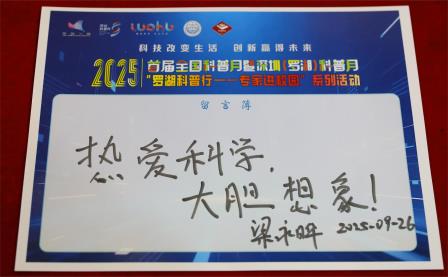 LUOHU
科技改变生活 创新赢得未来
2025 首届全国科普月暨深圳(罗湖)科普月
“罗湖科普行——专家进校园”系列活动
留言簿
热爱科学,
大胆想象!
2025-09-26